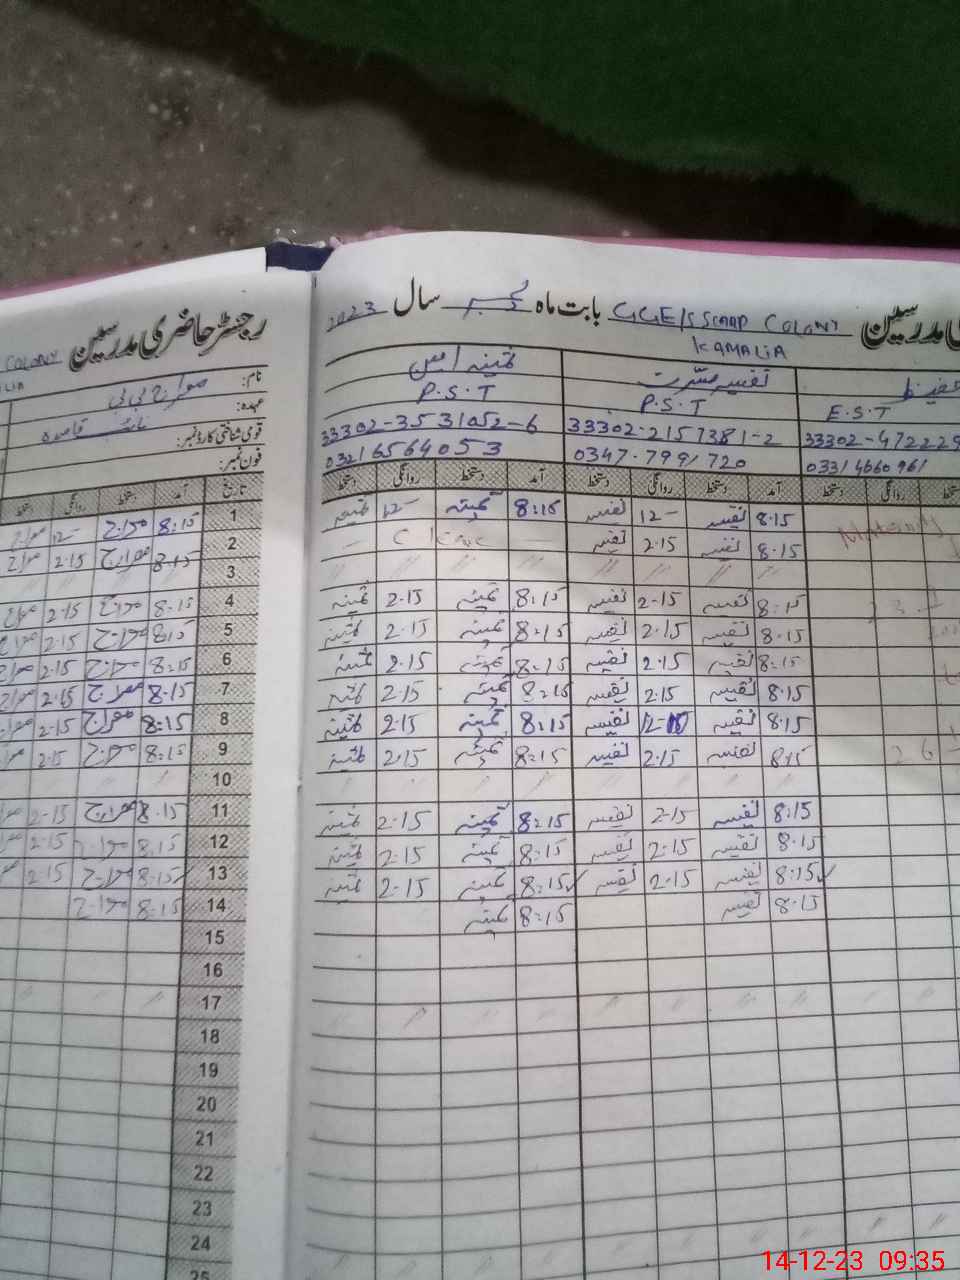 رجسٹر حاضری مدرسین
COLONY
نام: معراج بی بی
عہدہ: نائب قاصدہ
قومی شناختی کارڈ نمبر:
فون نمبر:
تاریخ آمد دستخط روانگی دستخط
1 8:15 معراج 12- معراج
2 8:15 معراج 2.15 معراج
3
4 8:15 معراج 2.15 معراج
5 8:15 معراج 2.15 معراج
6 8:15 معراج 2.15 معراج
7 8.15 معراج 2.15 معراج
8 8:15 معراج 2.15 معراج
9 8:15 معراج 2.15
10
11 8.15 معراج 2-15
12 8:15 معراج 2.15
13 8:15 معراج 2.15
14 8:15 معراج
15
16
17
18
19
20
21
22
23
24
25
مدرسین GGE/S SCARP COLONY بابت ماہ دسمبر سال 2023
KAMALIA
نفیسہ مسرت ثمینہ
E.S.T P.S.T P.S.T
33302-472229 33302-2157381-2 33302-3531052-6
0331 4660961 0347-7991720 0321 6564053
دستخط روانگی دستخط آمد دستخط روانگی دستخط آمد دستخط روانگی دستخط
Maternity 8.15 نفیسہ 12- نفیسہ 8:15 ثمینہ 12- ثمینہ
8.15 نفیسہ 2.15 نفیسہ
8:15 نفیسہ 2-15 نفیسہ 8:15 ثمینہ 2.15 ثمینہ
8.15 نفیسہ 2.15 نفیسہ 8:15 ثمینہ 2.15 ثمینہ
8:15 نفیسہ 2.15 نفیسہ 8:15 ثمینہ 2.15 ثمینہ
8.15 نفیسہ 2.15 نفیسہ 8:15 ثمینہ 2.15 ثمینہ
8:15 نفیسہ نفیسہ 8:15 ثمینہ 2.15 ثمینہ
8:15 نفیسہ 2.15 نفیسہ 8:15 ثمینہ 2.15 ثمینہ
8:15 نفیسہ 2-15 نفیسہ 8:15 ثمینہ 2.15 ثمینہ
8.15 نفیسہ 2.15 نفیسہ 8:15 ثمینہ 2.15 ثمینہ
8:15 نفیسہ 2.15 نفیسہ 8:15 ثمینہ 2.15 ثمینہ
8.15 نفیسہ 8:15 ثمینہ
14-12-23 09:35